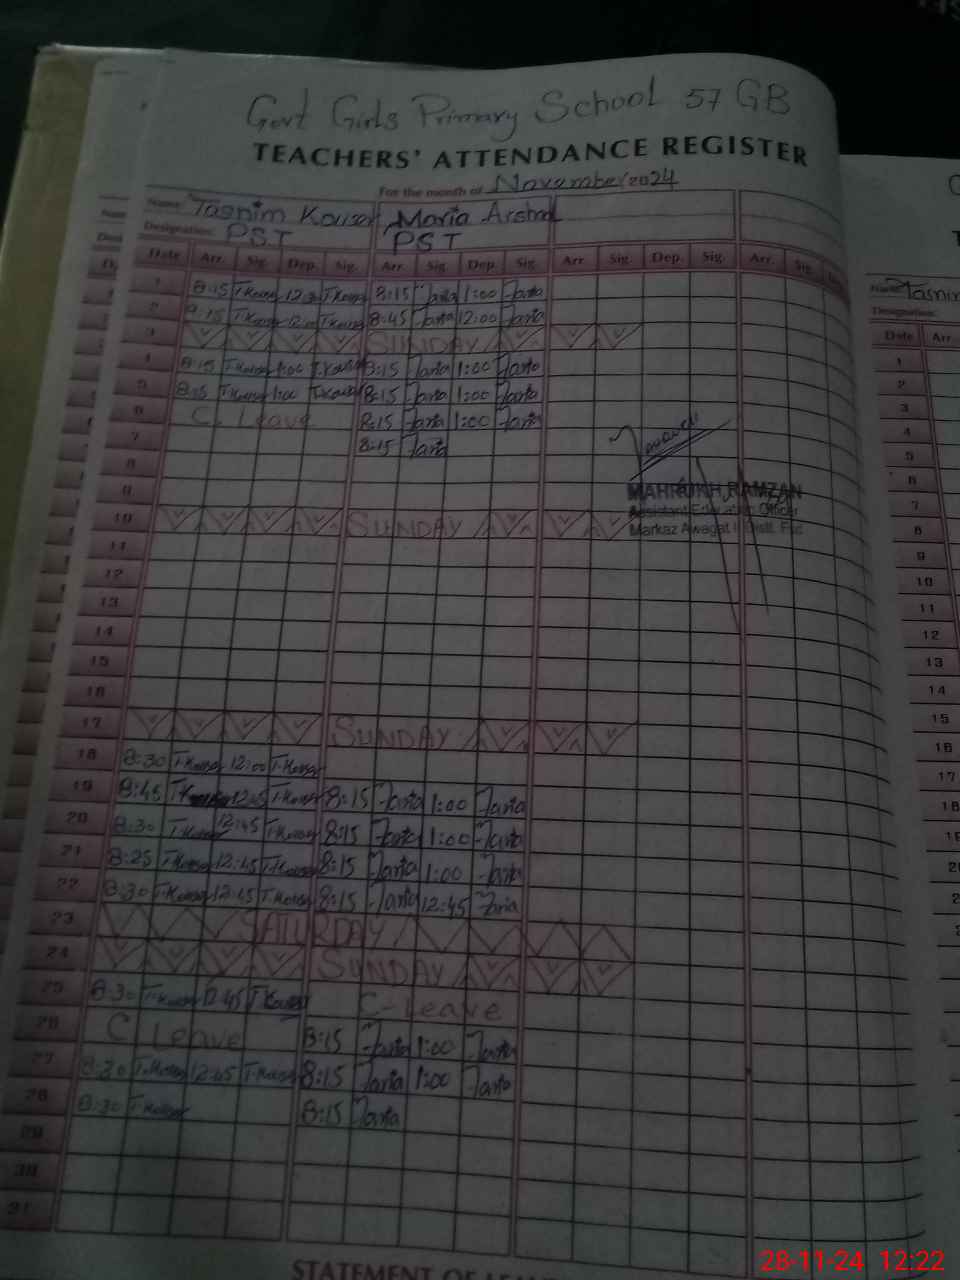 Govt Girls Primary School 57 GB
TEACHERS' ATTENDANCE REGISTER
For the month of November 2024
Name: Tasnim Kousar Maria Arshad
Designation: PST PST
Date Arr. Sig. Dep. Sig. Arr. Sig. Dep. Sig. Arr. Sig. Dep. Sig. Arr. Sig.
1 8:15 T Kousar T Kousar 8:15 Maria 1:00 Maria
2 8:15 T Kousar T Kousar 8:45 Maria 12:00 Maria
3 SUNDAY
4 8:15 T Kousar 1:00 T. Kousar 8:15 Maria 1:00 Maria
5 8:15 T Kousar 1:00 T. Kousar 8:15 Maria 1:00 Maria
6 C. Leave 8:15 Maria 1:00 Maria
7 8:15 Maria
8
9
10 SUNDAY
11
12
13
14
15
16
17 SUNDAY
18 8:30 T-Kousar 12:00 T-Kousar
19 8:45 T Kousar 12:45 T-Kousar 8:15 Maria 1:00 Maria
20 8:30 T-Kousar 12:45 T-Kousar 8:15 Maria 1:00 Maria
21 8:25 T-Kousar 12:45 T-Kousar 8:15 Maria 1:00 Maria
22 8:30 T-Kousar 12:45 T-Kousar 8:15 Maria 12:45 Maria
23 SATURDAY
24 SUNDAY
25 8:30 T-Kousar 12:45 T Kousar C-Leave
26 C Leave 8:15 Maria 1:00 Maria
27 8:30 T-Kousar 12:45 T-Kousar 8:15 Maria 1:00 Maria
28 8:30 T Kousar 8:15 Maria
29
30
31
MAHRUKH RAMZAN
Assistant Education Officer
Markaz Awagat I Distt. Fsd
STATEMENT OF
Name: Tasnim
Designation:
Date Arr
1
2
3
4
5
6
7
8
9
10
11
12
13
14
15
16
17
18
28-11-24 12:22